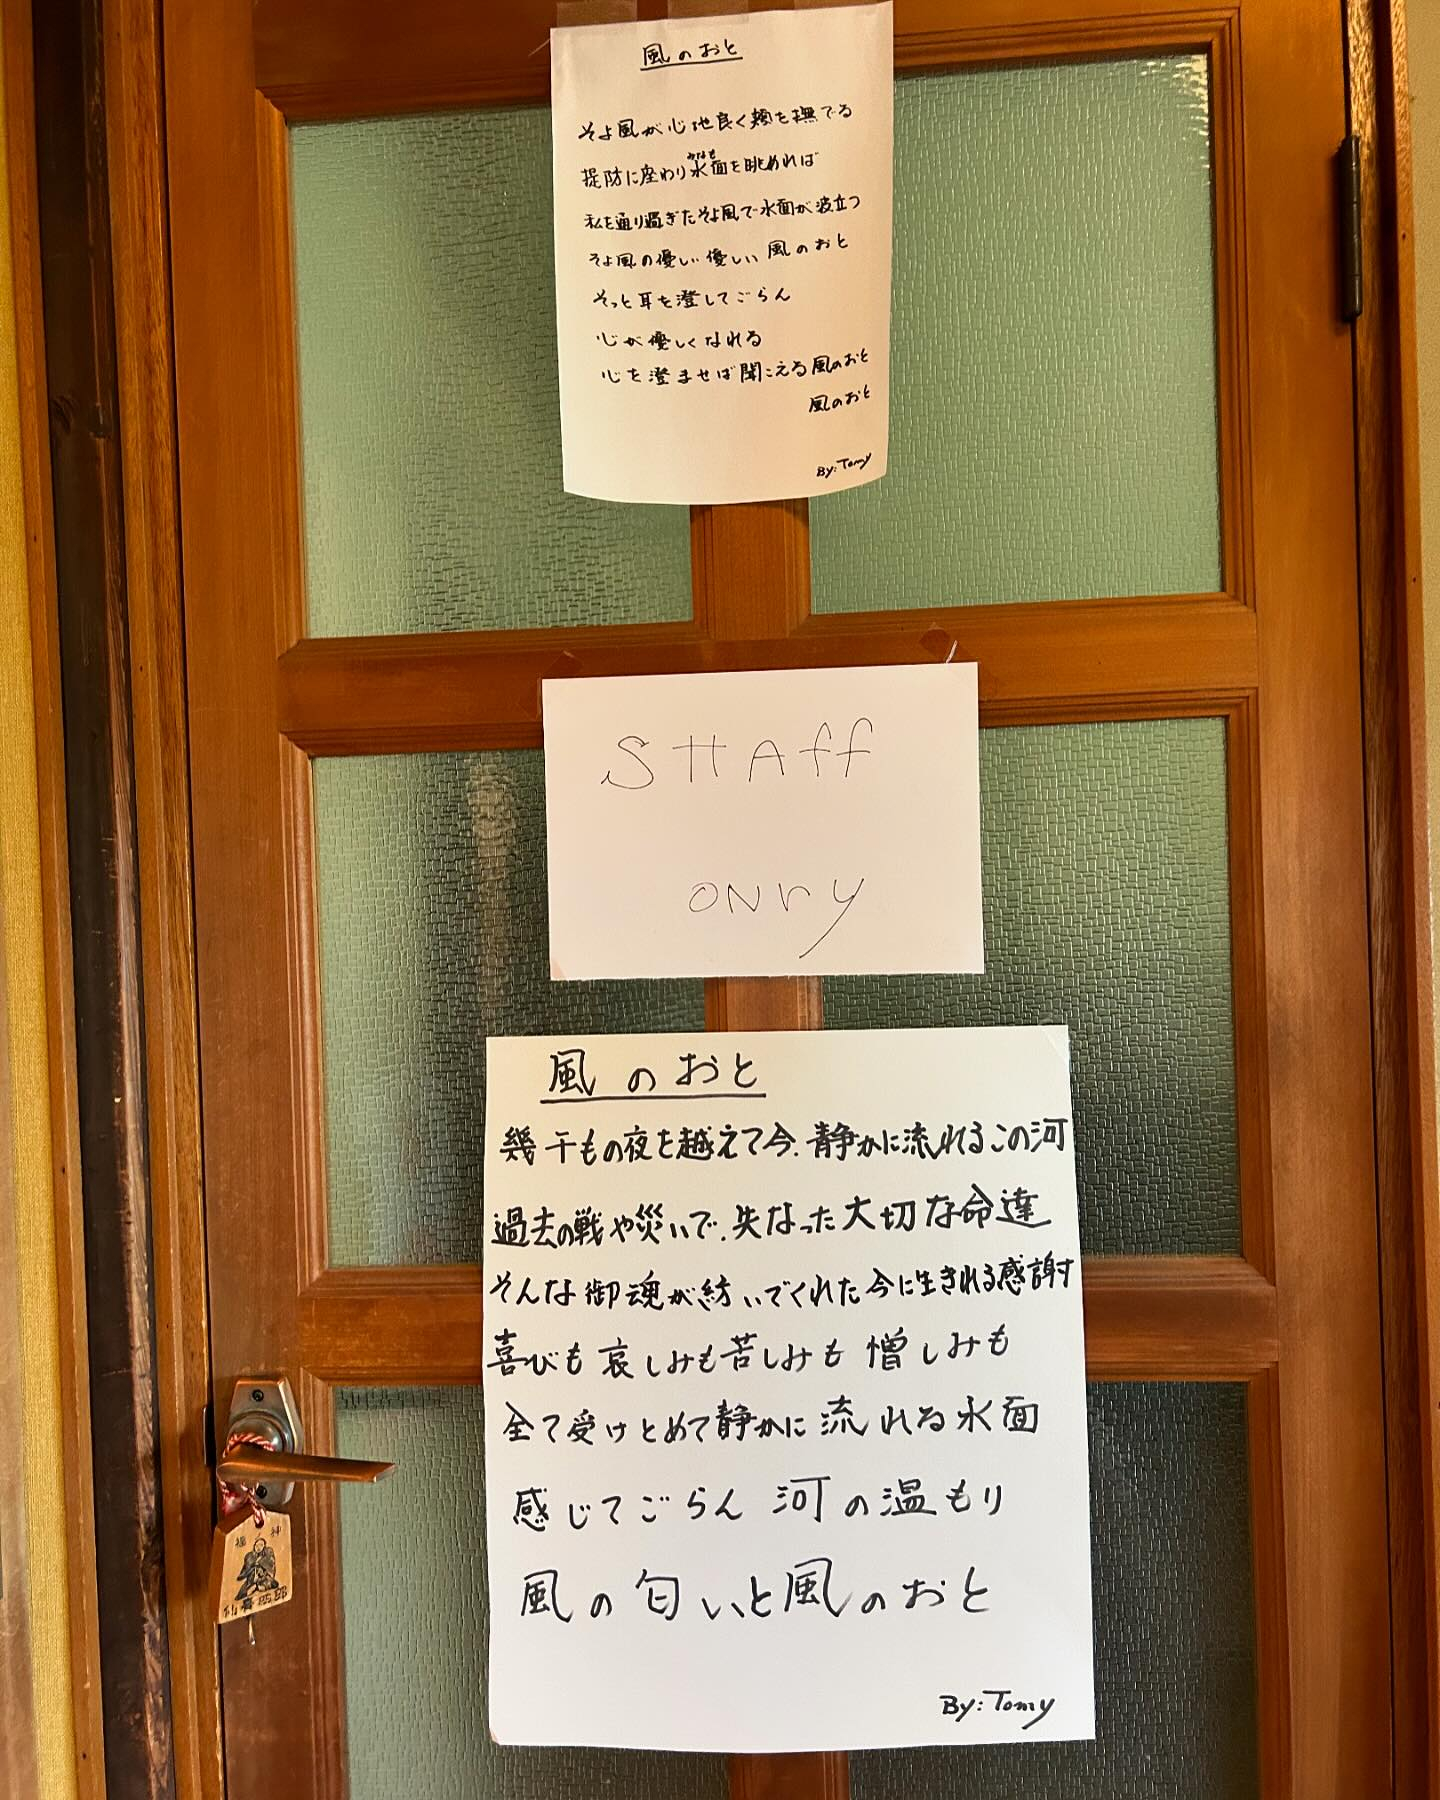 風のおと
そよ風が心地良く頬を撫でる
堤防に座わり水面を眺めれば
みなも
私を通り過ぎたそよ風で水面が波立つ
そよ風の優しい優しい風のおと
そっと耳を澄してごらん
心が優しくなれる
心を澄ませば聞こえる風のおと
風のおと
By: Tomy
SHAff
ONry
風のおと
幾千もの夜を越えて今、静かに流れるこの河
過去の戦や災いで、失なった大切な命達
そんな御魂が紡いでくれた今に生きれる感謝
喜びも哀しみも苦しみも憎しみも
全て受けとめて静かに流れる水面
感じてごらん河の温もり
風の匂いと風のおと
By: Tomy
福ノ神
仙臺四郎